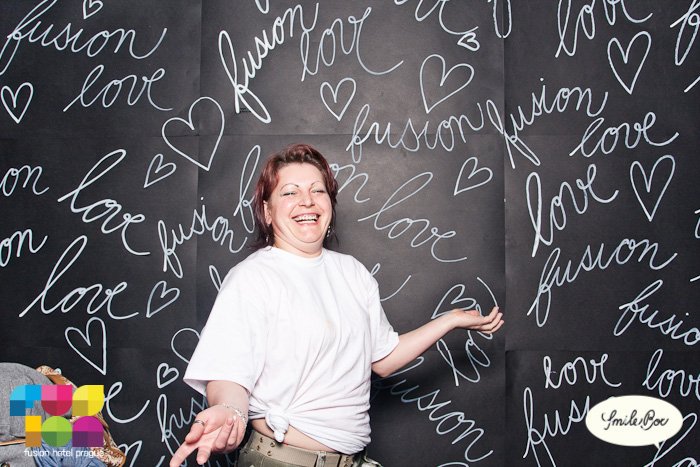 fusion
love
fusion
love
fusion
love
fusion
love
fusion
love
love
fusion
love
fusion
love
fusion
love
fusion
love
fusion
love
fusion
love
fusion
love
fusion
fusion
love
love
fusion
fusion hotel prague
SmileBox